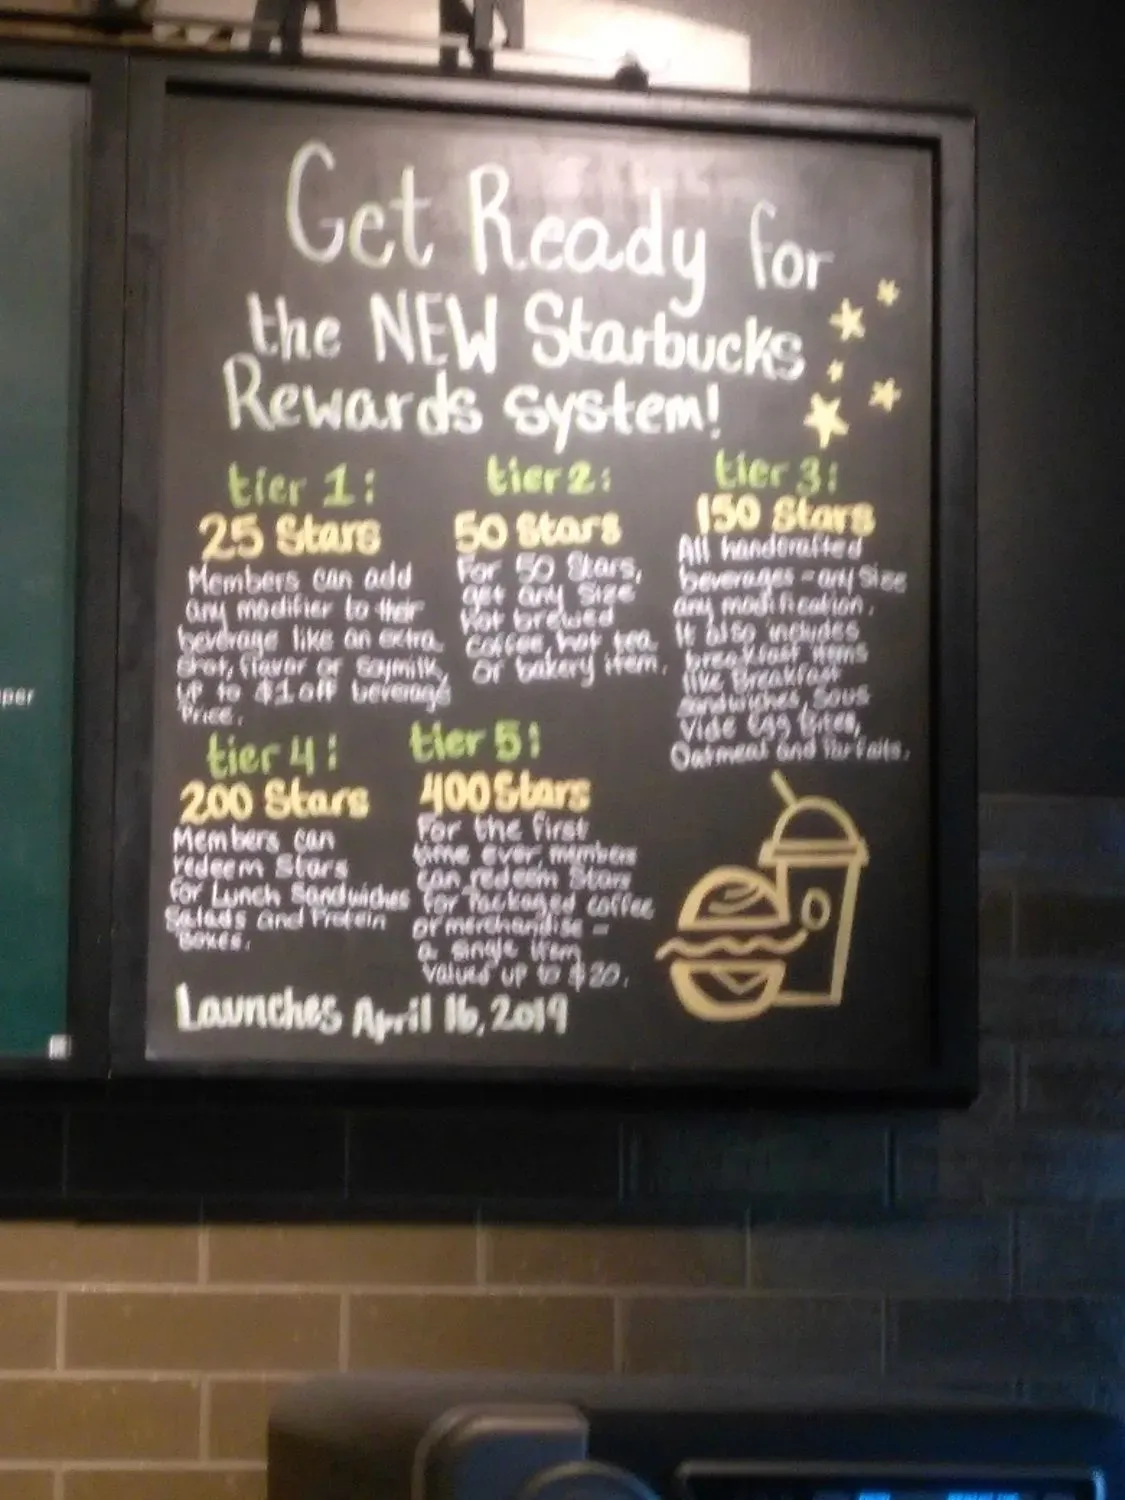 Get Ready for
the NEW Starbucks
Rewards system!
tier 1:
25 Stars
Members can add
any modifier to their
beverage like an extra
shot, flavor or soymilk,
up to $1 off beverage
Price.
tier 2:
50 Stars
For 50 Stars,
get any size
hot brewed
coffee, hot tea
or bakery item.
tier 3:
150 Stars
All handcrafted
beverages - any size
any modification.
It also includes
breakfast items
like Breakfast
sandwiches, Sous
Vide Egg Bites,
Oatmeal and Parfaits.
tier 4:
200 Stars
Members can
redeem Stars
for Lunch Sandwiches
Salads and Protein
Boxes.
tier 5:
400 Stars
For the first
time ever, members
can redeem Stars
for Packaged coffee
or merchandise -
a single item
valued up to $20.
Launches April 16, 2019
per